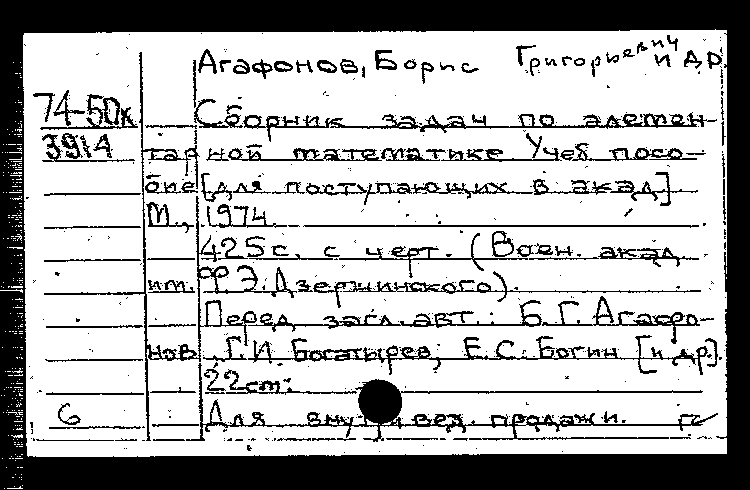 Агафонов, Борис Григорьевич и др.
74-50к Сборник задач по элемен-
3914 тарной математике Учеб посо-
бие [для поступающих в акад]
М., 1974.
425с. с черт. (Воен. акад
им. Ф.Э. Дзержинского).
Перед загл. авт.: Б.Г. Агафо-
нов, Г.И. Богатырев, Е.С. Богин [и др.].
22см.
6 Для внутривед. продажи.